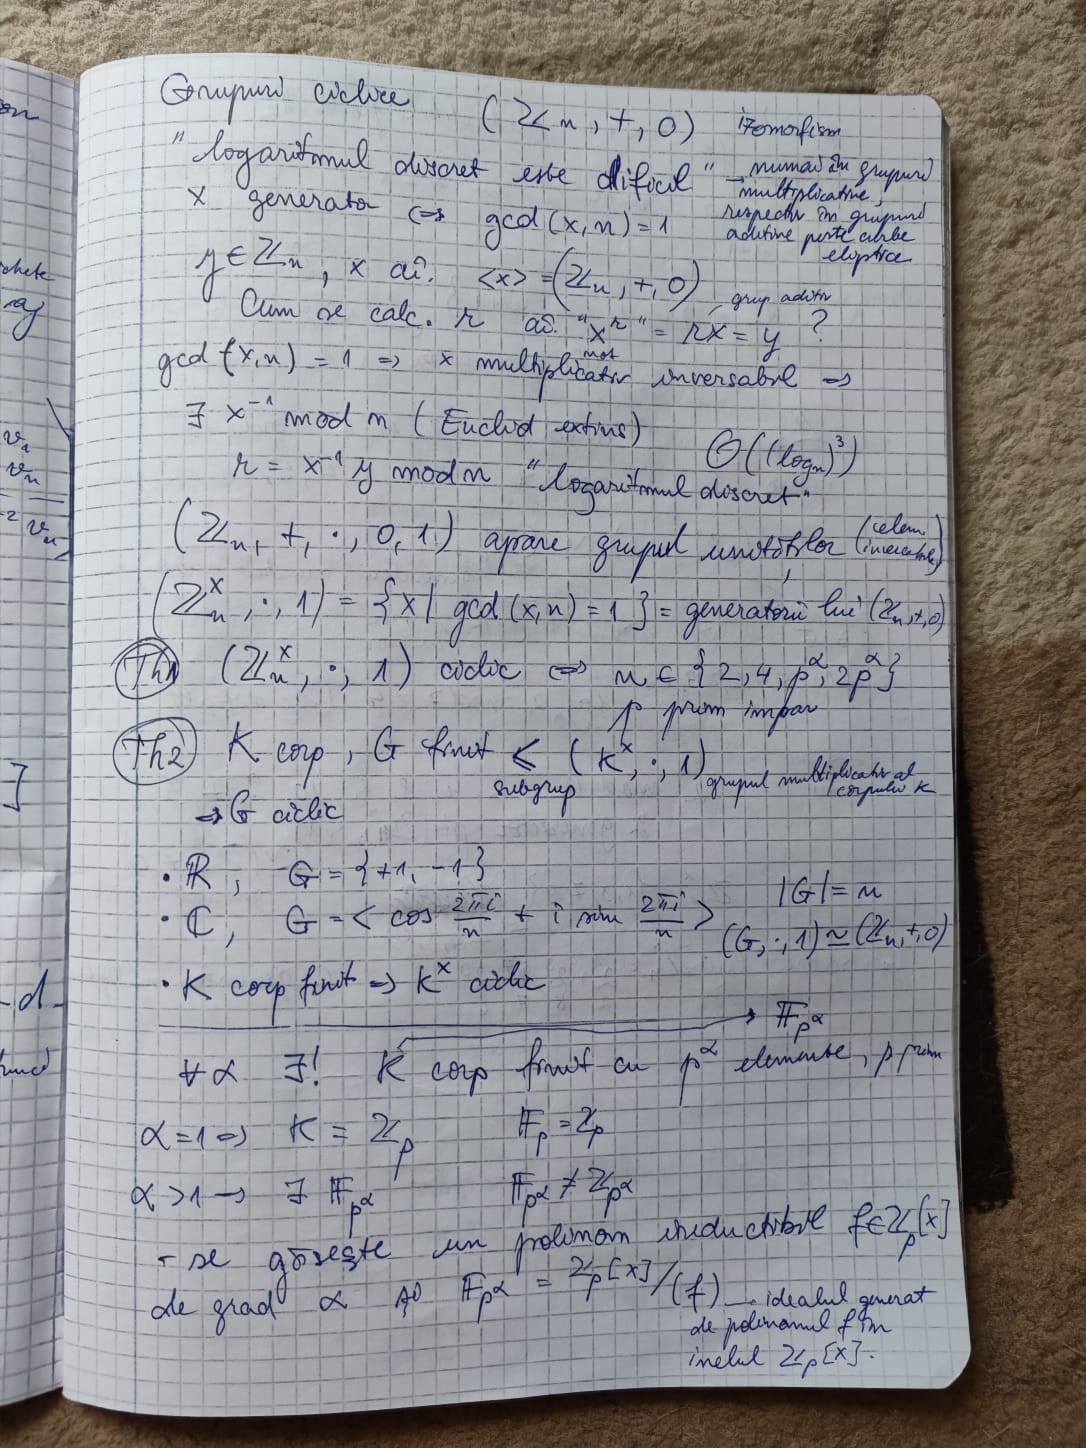 Grupuri ciclice (ℤn, +, 0) izomorfism
"logaritmul discret este dificil" → numai în grupuri
multiplicative,
respectiv în grupuri
aditive peste curbe
eliptice
x generator ⇔ gcd(x,n)=1
y∈ℤn, x aî. <x> = (ℤn, +, 0)
grup aditiv
Cum se calc. r aî. "x^r" = rx = y ?
not
gcd(x,n) = 1 ⇒ x multiplicativ inversabil ⇒
∃ x⁻¹ mod n (Euclid extins)
Θ((log n)³)
r = x⁻¹y mod n "logaritmul discret"
(ℤn, +, ·, 0, 1) apare grupul unităților (elem. inversabile)
(ℤn^x, ·, 1) = {x | gcd(x,n)=1} = generatorii lui (ℤn,+,0)
Th1 (ℤn^x, ·, 1) ciclic ⇔ n ∈ {2, 4, p^α, 2p^α}
p prim impar
Th2 K corp, G finit ≤ (K^x, ·, 1)
subgrup grupul multiplicativ al
corpului K
⇒ G ciclic
• ℝ, G = {+1, -1}
• ℂ, G = < cos 2πi/n + i sin 2πi/n >
|G| = n
(G, ·, 1) ≃ (ℤn,+,0)
• K corp finit ⇒ K^x ciclic
→ 𝔽p^α
∀ α ∃! K corp finit cu p^α elemente, p prim
α=1 ⇒ K = ℤp 𝔽p = ℤp
α>1 → ∃ 𝔽p^α 𝔽p^α ≠ ℤp^α
- se găsește un polinom ireductibil f∈ℤp[x]
de grad α 𝔽p^α = ℤp[x]/(f) → idealul generat
de polinomul f în
inelul ℤp[x].